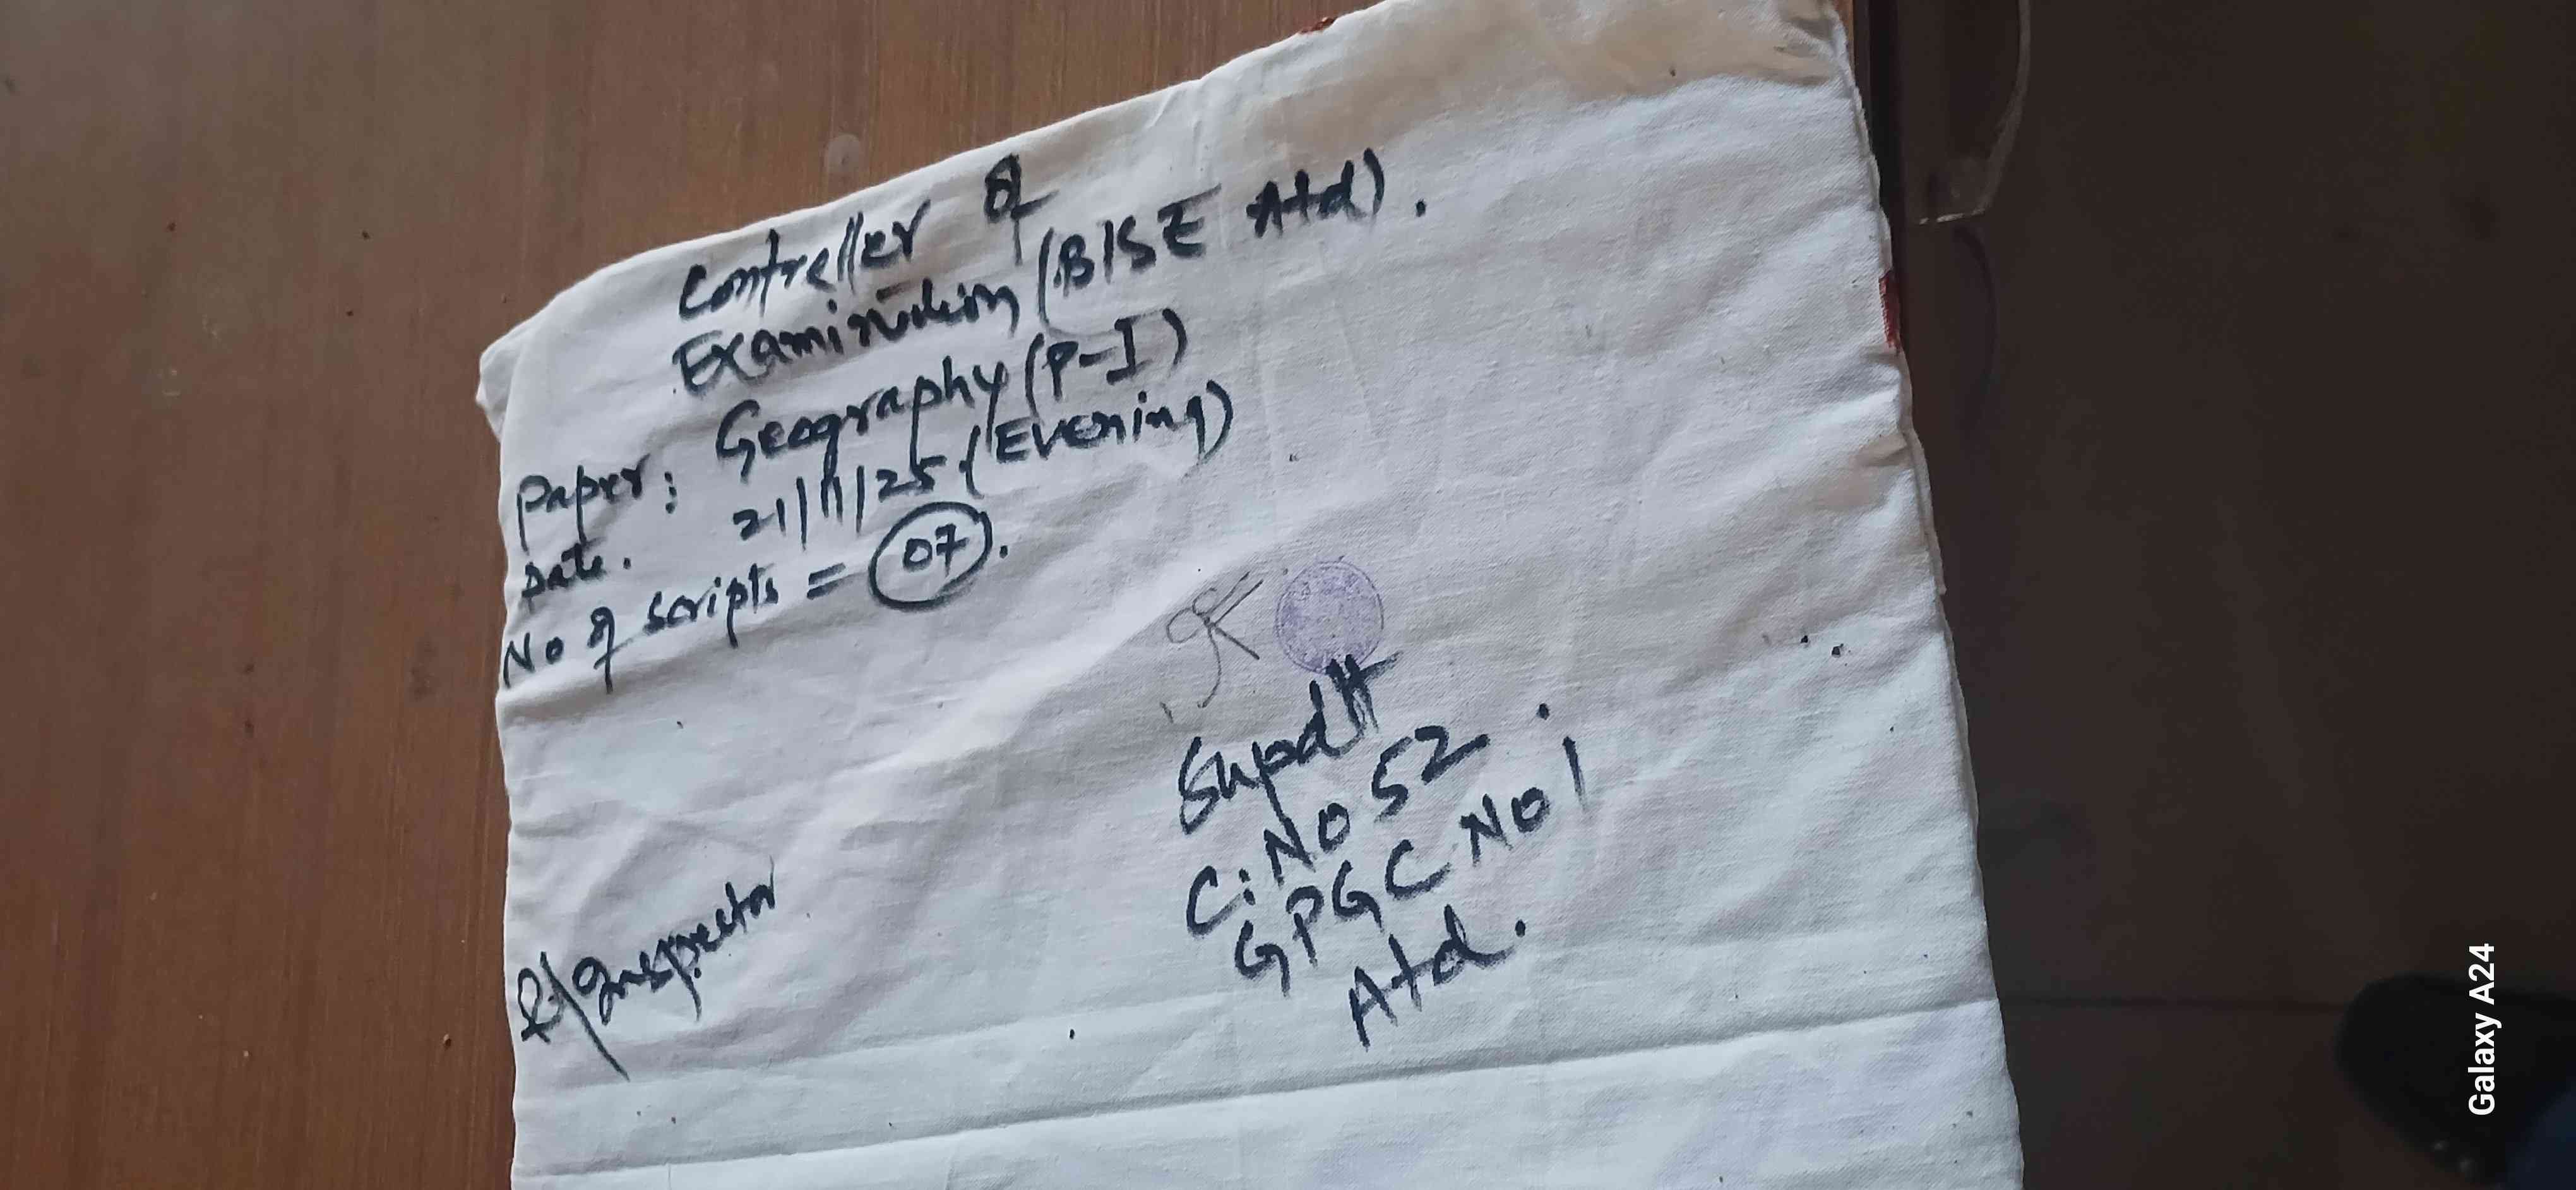 Controller of
Examination (BISE Atd).
Paper: Geography (P-I)
Date. 21/11/25 (Evening)
No of scripts = 07.
Supdtt
C: No 52.
GPGC No 1
Atd.
R/Inspector
Galaxy A24